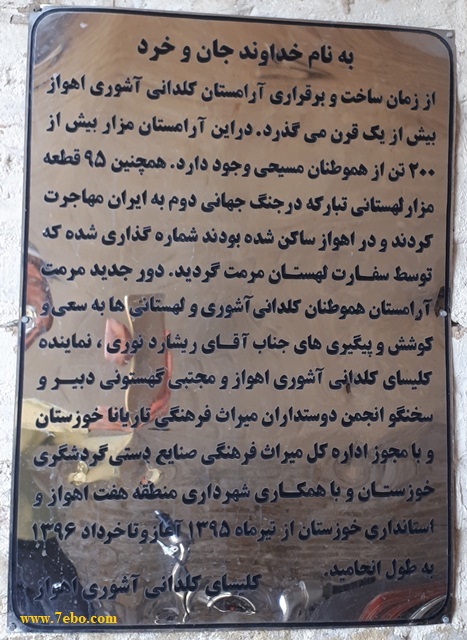 به نام خداوند جان و خرد
از زمان ساخت و برقراری آرامستان کلدانی آشوری اهواز
بیش از یک قرن می گذرد. دراین آرامستان مزار بیش از
۲۰۰ تن از هموطنان مسیحی وجود دارد. همچنین ۹۵ قطعه
مزار لهستانی تبارکه درجنگ جهانی دوم به ایران مهاجرت
کردند و در اهواز ساکن شده بودند شماره گذاری شده که
توسط سفارت لهستان مرمت گردید. دور جدید مرمت
آرامستان هموطنان کلدانی آشوری و لهستانی ها به سعی و
کوشش و پیگیری های جناب آقای ریشارد نوری ، نماینده
کلیسای کلدانی آشوری اهواز و مجتبی گهستونی دبیر و
سخنگو انجمن دوستداران میراث فرهنگی تاریانا خوزستان
و با مجوز اداره کل میراث فرهنگی صنایع دستی گردشگری
خوزستان و با همکاری شهرداری منطقه هفت اهواز و
استانداری خوزستان از تیرماه ۱۳۹۵ آغاز و تا خرداد ۱۳۹۶
به طول انجامید.
کلیسای کلدانی آشوری اهواز
www.7ebo.com